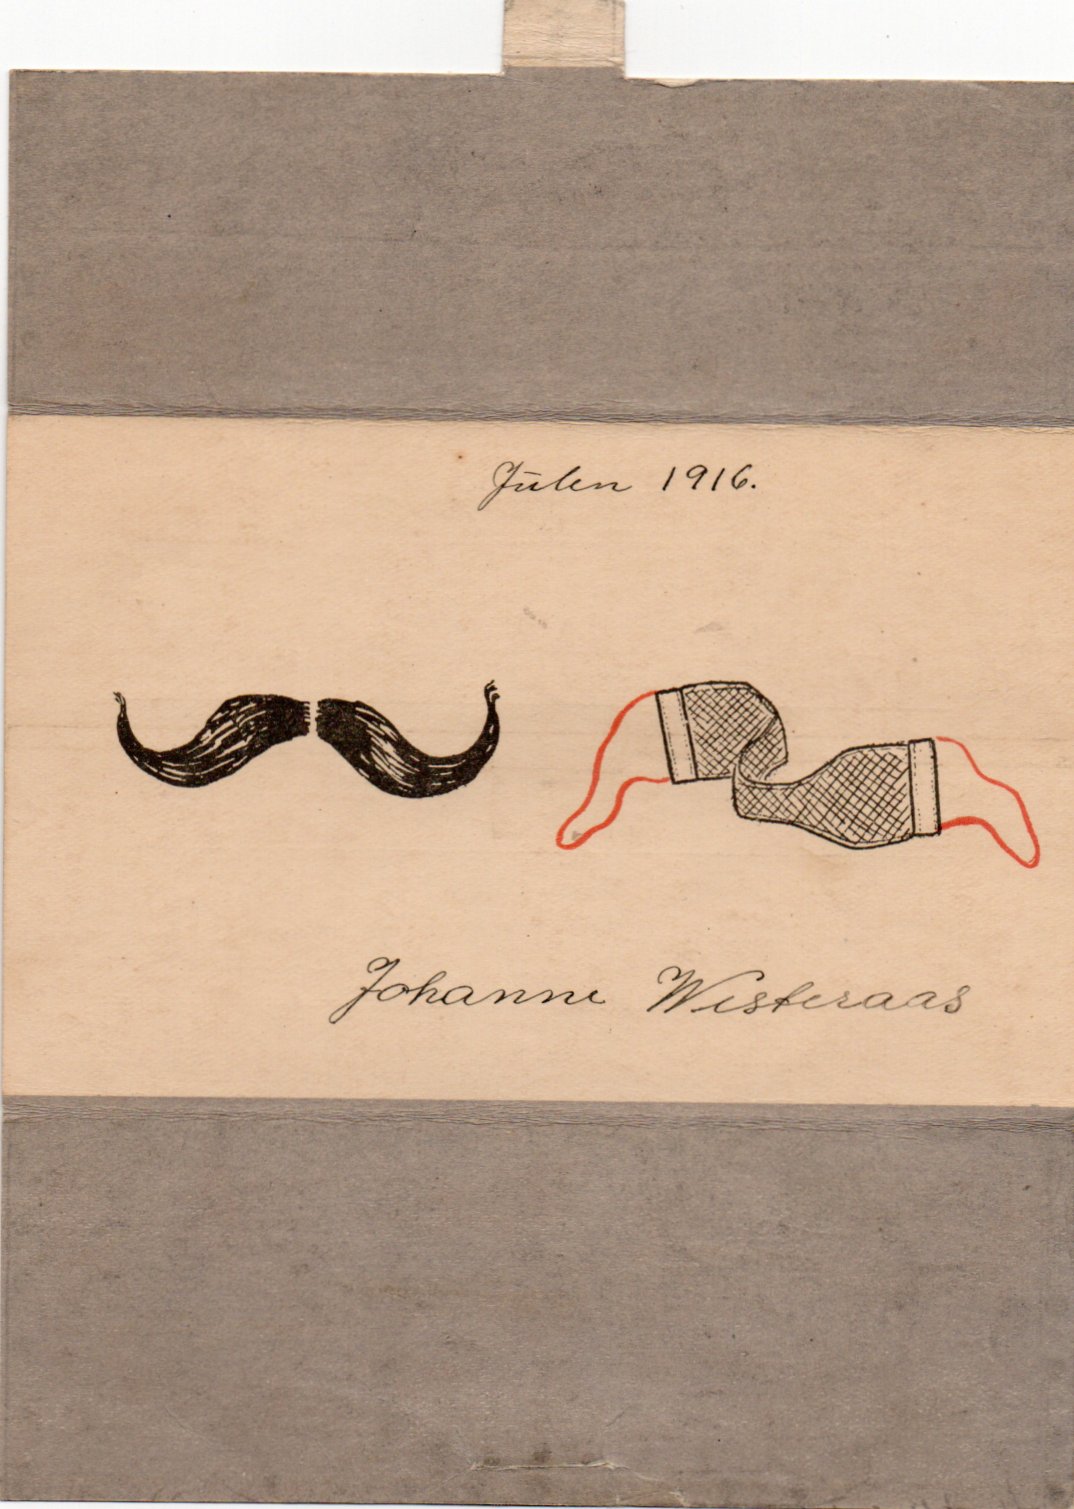 Julen 1916.
Johanne Westeraas